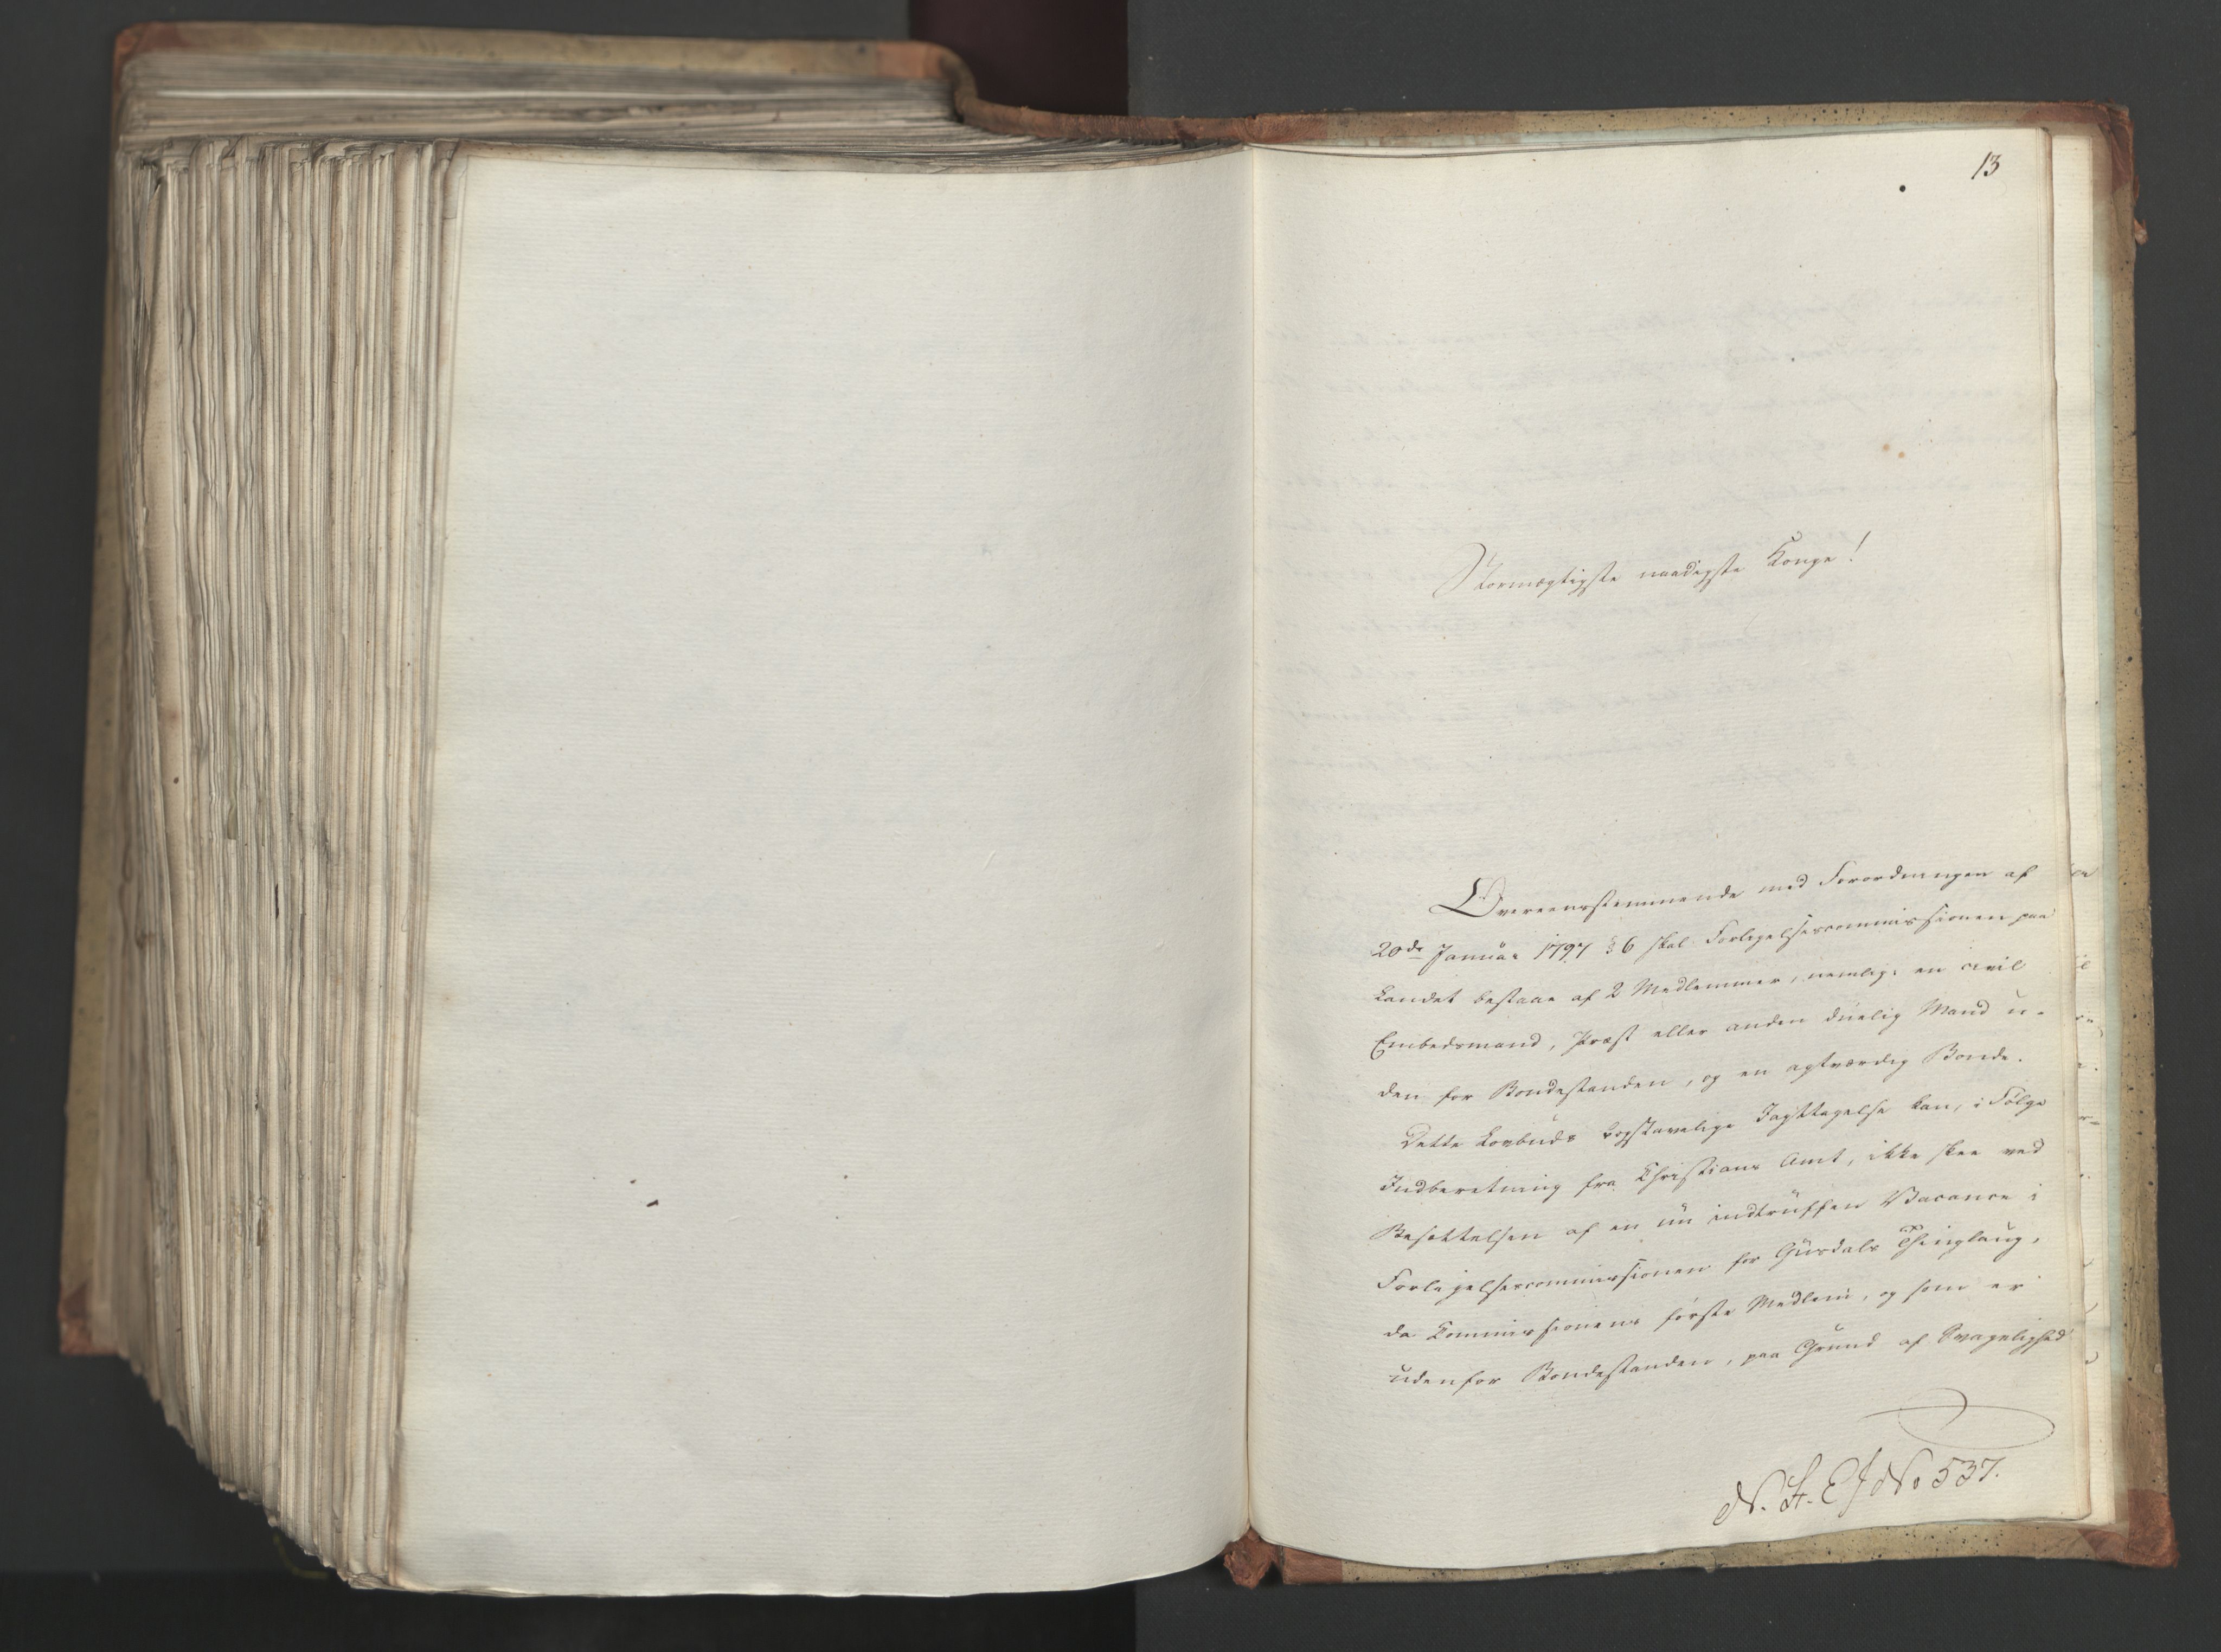 13
Stormægtigste naadigste Konge!
Overeensstemmende med Forordningen af
20de Januar 1797 § 6 skal Forligelsescommissionen paa
Landet bestaae af 2 Medlemmer, nemlig: en civil
Embedsmand, Præst eller anden duelig Mand u-
den for Bondestanden, og en agtværdig Bonde.
Dette Lovbuds bogstavelige Iagttagelse kan, i Følge
Indberetning fra Christians Amt, ikke skee ved
Besættelsen af en nu indtruffen Vacance i
Forligelsescommissionen for Gusdals Thinglaug,
da Commissionens første Medlem, og som er
udenfor Bondestanden, paa Grund af Svagelighed
N. St. E J No 537.